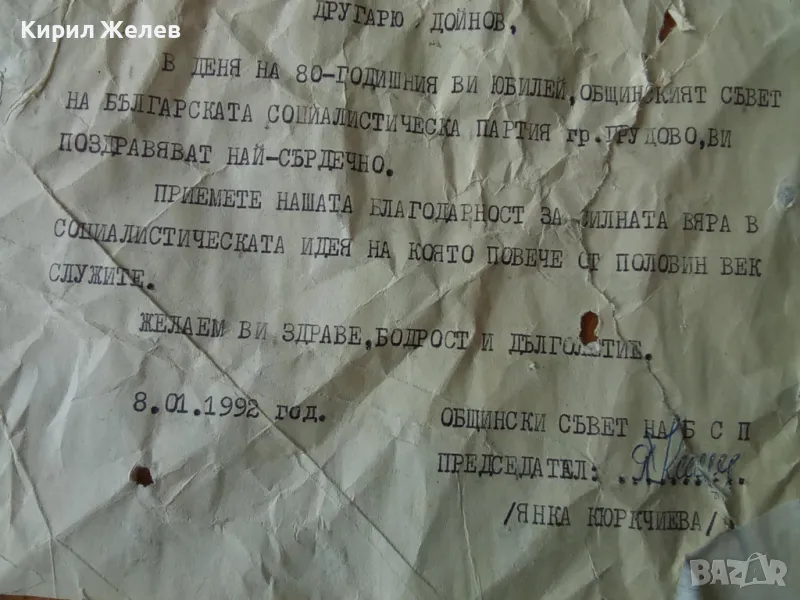 Кирил Желев
ДРУГАРЮ ДОЙНОВ,
В ДЕНЯ НА 80-ГОДИШНИЯ ВИ ЮБИЛЕЙ, ОБЩИНСКИЯТ СЪВЕТ
НА БЪЛГАРСКАТА СОЦИАЛИСТИЧЕСКА ПАРТИЯ гр. ТРУДОВО, ВИ
ПОЗДРАВЯВАТ НАЙ-СЪРДЕЧНО.
ПРИЕМЕТЕ НАШАТА БЛАГОДАРНОСТ ЗА СИЛНАТА ВЯРА В
СОЦИАЛИСТИЧЕСКАТА ИДЕЯ НА КОЯТО ПОВЕЧЕ ОТ ПОЛОВИН ВЕК
СЛУЖИТЕ.
ЖЕЛАЕМ ВИ ЗДРАВЕ, БОДРОСТ И ДЪЛГОЛЕТИЕ.
8.01.1992 год.
ОБЩИНСКИ СЪВЕТ НА Б С П
ПРЕДСЕДАТЕЛ: ..........
/ЯНКА КЮРКЧИЕВА/
BAZAR